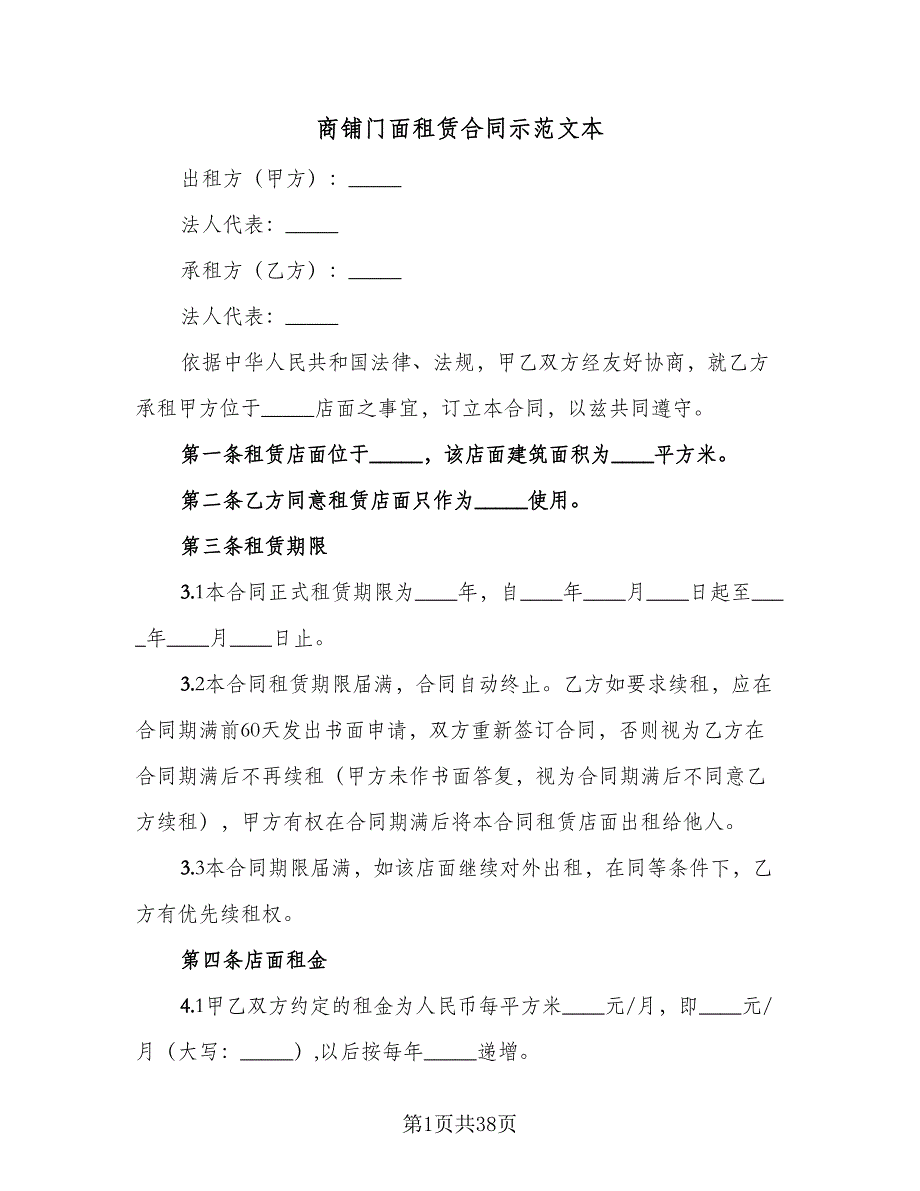 商铺门面租赁合同示范文本
出租方（甲方）：_____
法人代表：_____
承租方（乙方）：_____
法人代表：_____
依据中华人民共和国法律、法规，甲乙双方经友好协商，就乙方
承租甲方位于_____店面之事宜，订立本合同，以兹共同遵守。
第一条租赁店面位于_____，该店面建筑面积为____平方米。
第二条乙方同意租赁店面只作为_____使用。
第三条租赁期限
3.1本合同正式租赁期限为____年，自____年____月____日起至___
_年____月____日止。
3.2本合同租赁期限届满，合同自动终止。乙方如要求续租，应在
合同期满前60天发出书面申请，双方重新签订合同，否则视为乙方在
合同期满后不再续租（甲方未作书面答复，视为合同期满后不同意乙
方续租），甲方有权在合同期满后将本合同租赁店面出租给他人。
3.3本合同期限届满，如该店面继续对外出租，在同等条件下，乙
方有优先续租权。
第四条店面租金
4.1甲乙双方约定的租金为人民币每平方米____元/月，即____元/
月（大写：_____）,以后按每年_____递增。
第1页共38页